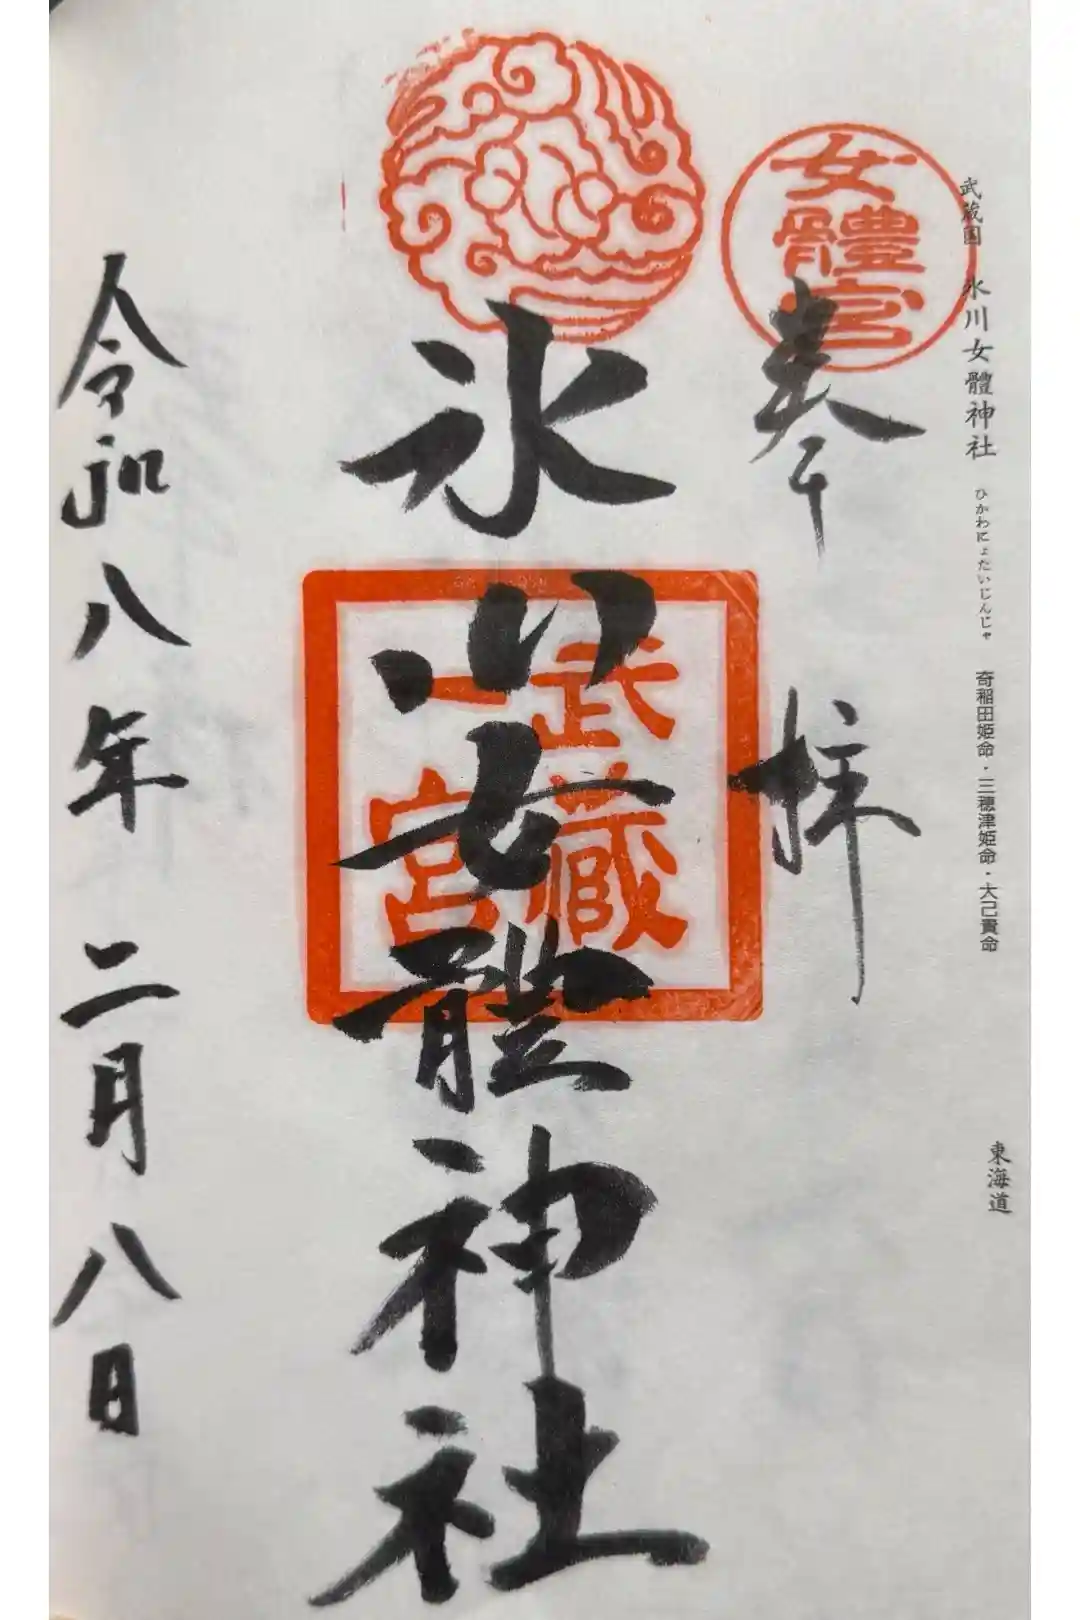 武蔵国 氷川女體神社 ひかわにょたいじんじゃ 奇稲田姫命・三穂津姫命・大己貴命 東海道
女體宮
奉拝
武蔵
一宮
氷川女體神社
令和八年二月八日